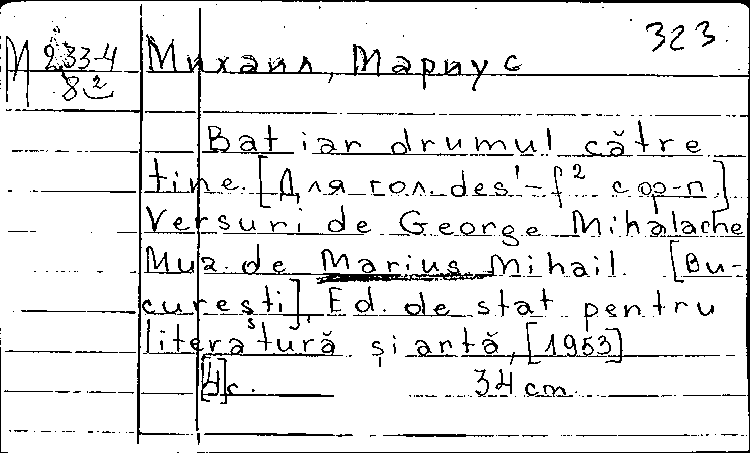 323
М 233-4
8²
Михаил, Мариус
Bat iar drumul către
tine. [Для гол. des¹-f² с ор-п]
Versuri de George Mihalache
Muz. de Marius Mihail. [Bu-
curești], Ed. de stat pentru
literatură și artă, [1953]
[4]с. 34 cm